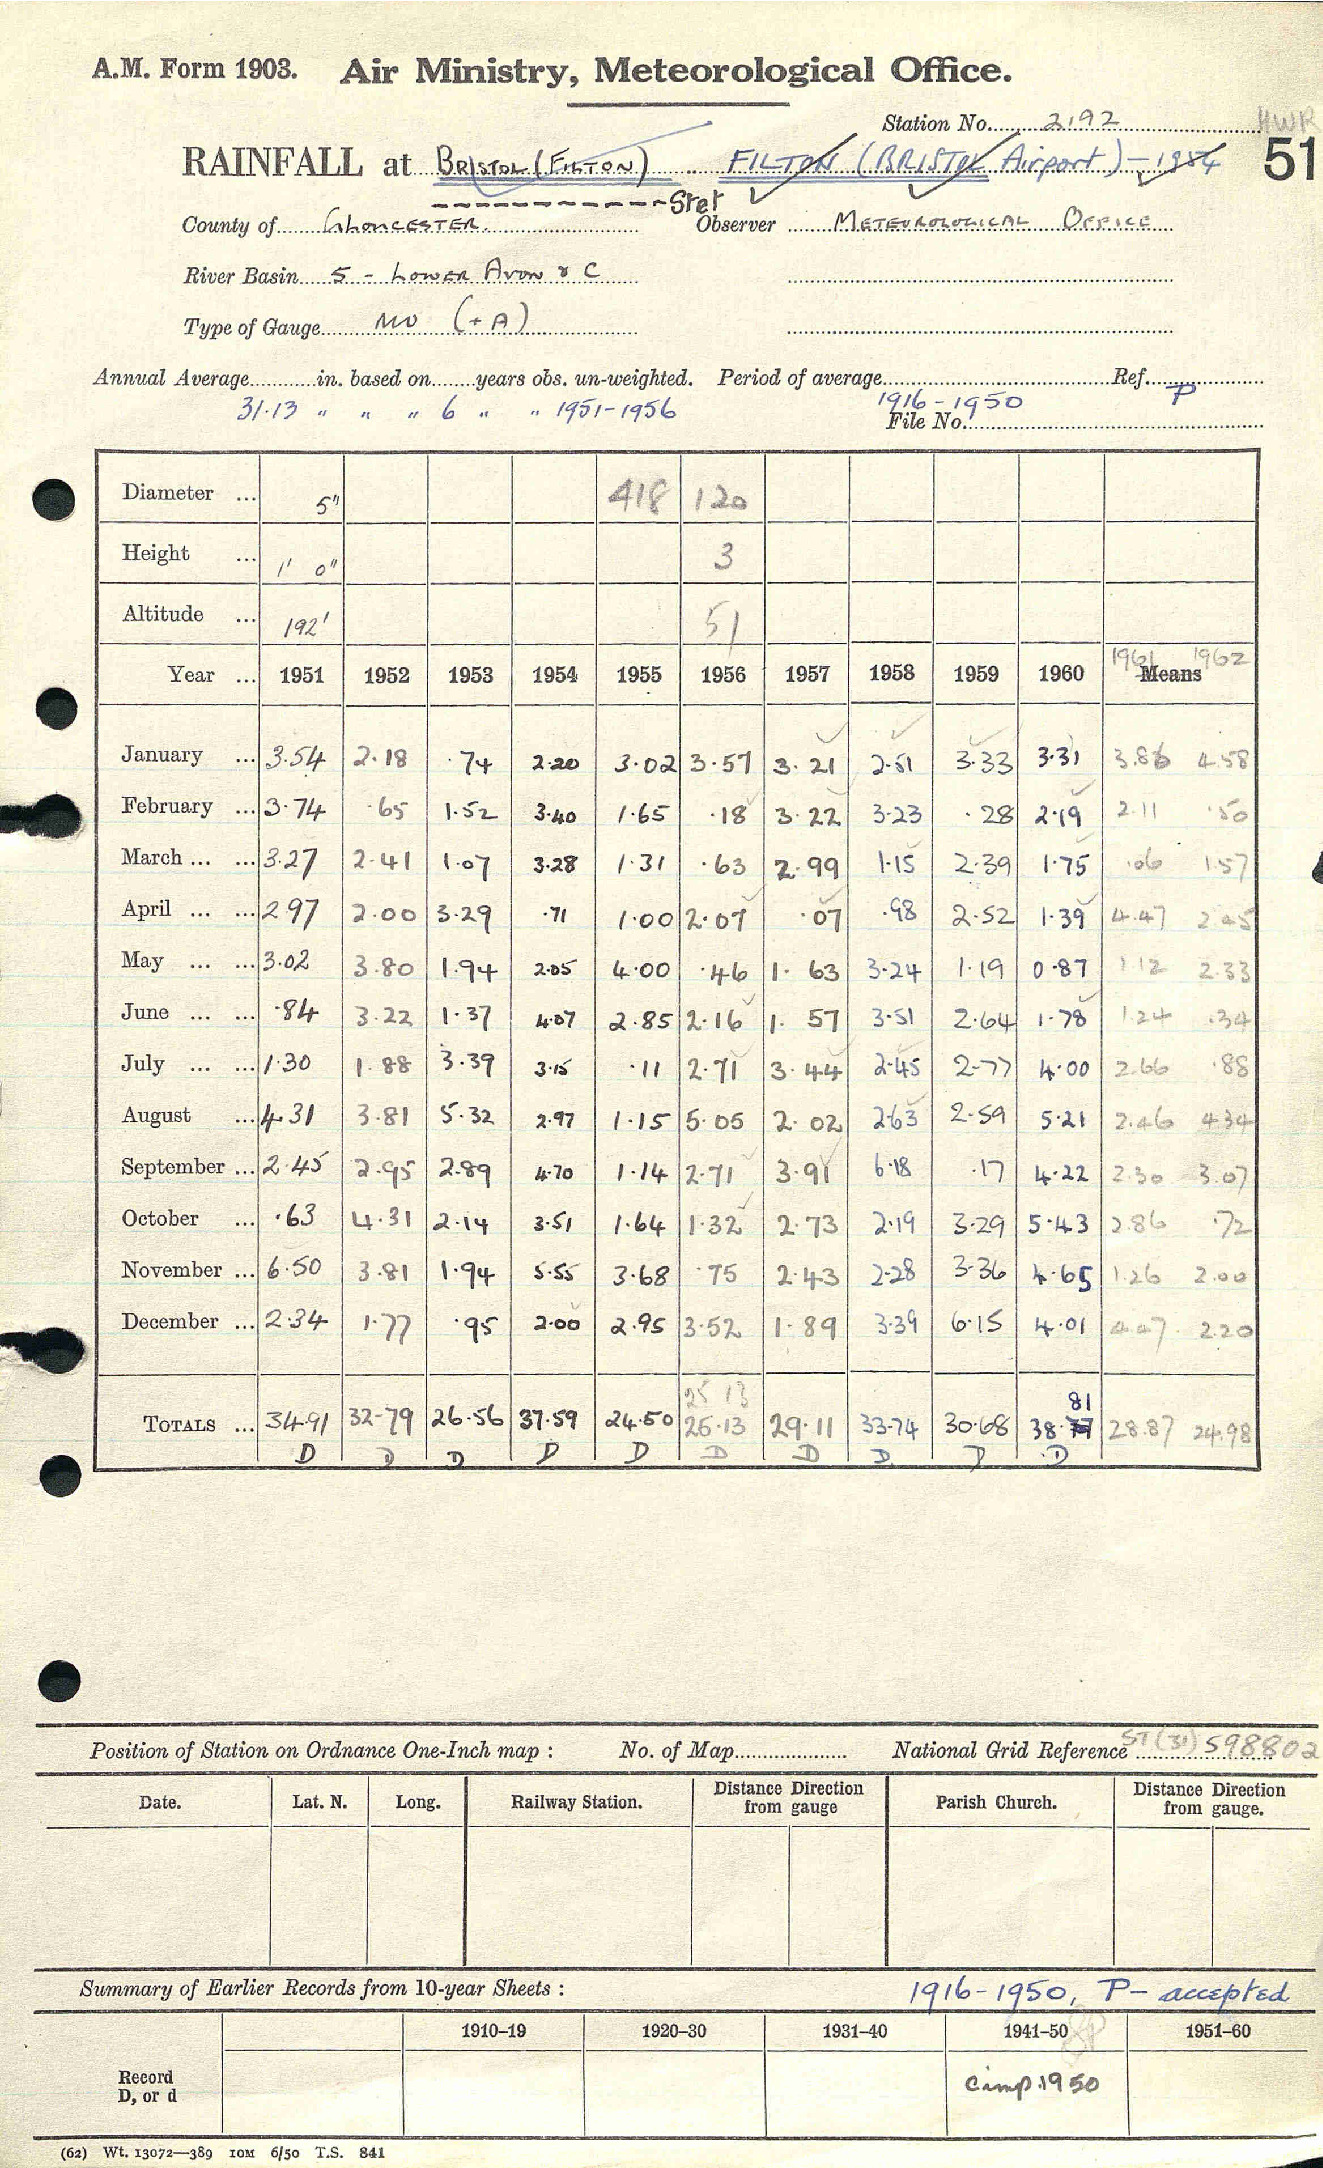 A.M. Form 1903. Air Ministry, Meteorological Office.
Station No. 2192 HWR
RAINFALL at BRISTOL (FILTON) FILTON (BRISTOL Airport) - 1954 51
Stet
County of GLOUCESTER. Observer METEOROLOGICAL OFFICE
River Basin 5 - LOWER AVON & C
Type of Gauge MO (+ A)
Annual Average in. based on years obs. un-weighted. Period of average Ref. P
31.13 " " " 6 " " 1951-1956 1916-1950
File No.
Diameter ... 5" 418 120
Height ... 1' 0" 3
Altitude ... 192' 51
Year ... 1951 1952 1953 1954 1955 1956 1957 1958 1959 1960 Means 1961 1962
January ... 3.54 2.18 .74 2.20 3.02 3.57 3.21 2.51 3.33 3.31 3.86 4.58
February ... 3.74 .65 1.52 3.40 1.65 .18 3.22 3.23 .28 2.19 2.11 .50
March ... ... 3.27 2.41 1.07 3.28 1.31 .63 2.99 1.15 2.39 1.75 .06 1.57
April ... ... 2.97 2.00 3.29 .71 1.00 2.07 .07 .98 2.52 1.39 4.47 2.45
May ... ... 3.02 3.80 1.94 2.05 4.00 .46 1.63 3.24 1.19 0.87 1.12 2.33
June ... ... .84 3.22 1.37 4.07 2.85 2.16 1.57 3.51 2.64 1.78 1.24 .34
July ... ... 1.30 1.88 3.39 3.15 .11 2.71 3.44 2.45 2.77 4.00 2.66 .88
August ... 4.31 3.81 5.32 2.97 1.15 5.05 2.02 2.63 2.59 5.21 2.46 4.34
September ... 2.45 2.95 2.89 4.70 1.14 2.71 3.91 6.18 .17 4.22 2.30 3.07
October ... .63 4.31 2.14 3.51 1.64 1.32 2.73 2.19 3.29 5.43 2.86 .72
November ... 6.50 3.81 1.94 5.55 3.68 .75 2.43 2.28 3.36 4.65 1.26 2.00
December ... 2.34 1.77 .95 2.00 2.95 3.52 1.89 3.39 6.15 4.01 4.47 2.20
25 13 81
TOTALS ... 34.91 32.79 26.56 37.59 24.50 25.13 29.11 33.74 30.68 38.77 28.87 24.98
D D D D D D D D D D
Position of Station on Ordnance One-Inch map : No. of Map National Grid Reference ST (31) 598802
Date. Lat. N. Long. Railway Station. Distance from gauge Direction Parish Church. Distance from gauge. Direction
Summary of Earlier Records from 10-year Sheets : 1916-1950, P- accepted
1910-19 1920-30 1931-40 1941-50 1951-60
Record
D, or d
cimp 1950
(62) Wt. 13072—389 10M 6/50 T.S. 841